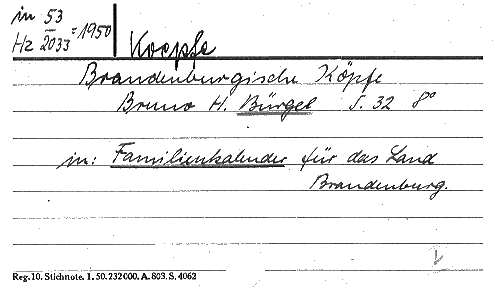 in 53
Hz 2033 = 1950
Koepfe
Brandenburgische Köpfe
Bruno H. Bürgel S. 32 8°
in: Familienkalender für das Land
Brandenburg.
Reg. 10. Stichnote. 1. 50. 232000. A. 803. S. 4062